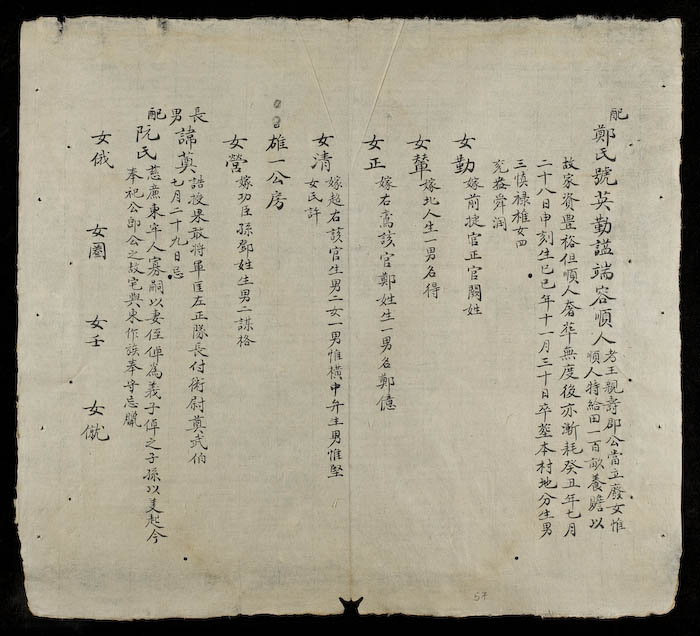 配鄭氏號英勤謚端容順人老王親壽郡公當立廢女惟
順人特給田一百畝養贍以
故家資豐裕但順人奢華無度後亦漸耗癸丑年七月
二十八日申刻生己巳年十一月三十日卒塟本村地分生男
三慎祿稚女四
充益舜润
女勤嫁前捷官正官関姓
女輦嫁北人生一男名得
女正嫁右嵩該官鄭姓生一男名鄭億
女清嫁超右該官生男二女一男惟横中年生男惟堅
女氏許
雄一公房
女營嫁功臣孫鄧姓生男二謀格
長男諱䔇誥授果敢將軍匡左正隊長付衛尉䔇武伯
七月二十九日忌
配阮氏慈廉東牢人寡嗣以妻侄倬為義子倬之子孫以美起今
奉祀公即公之故宅與東作族奉守忌臘
女俄 女圈 女壬 女僦
57